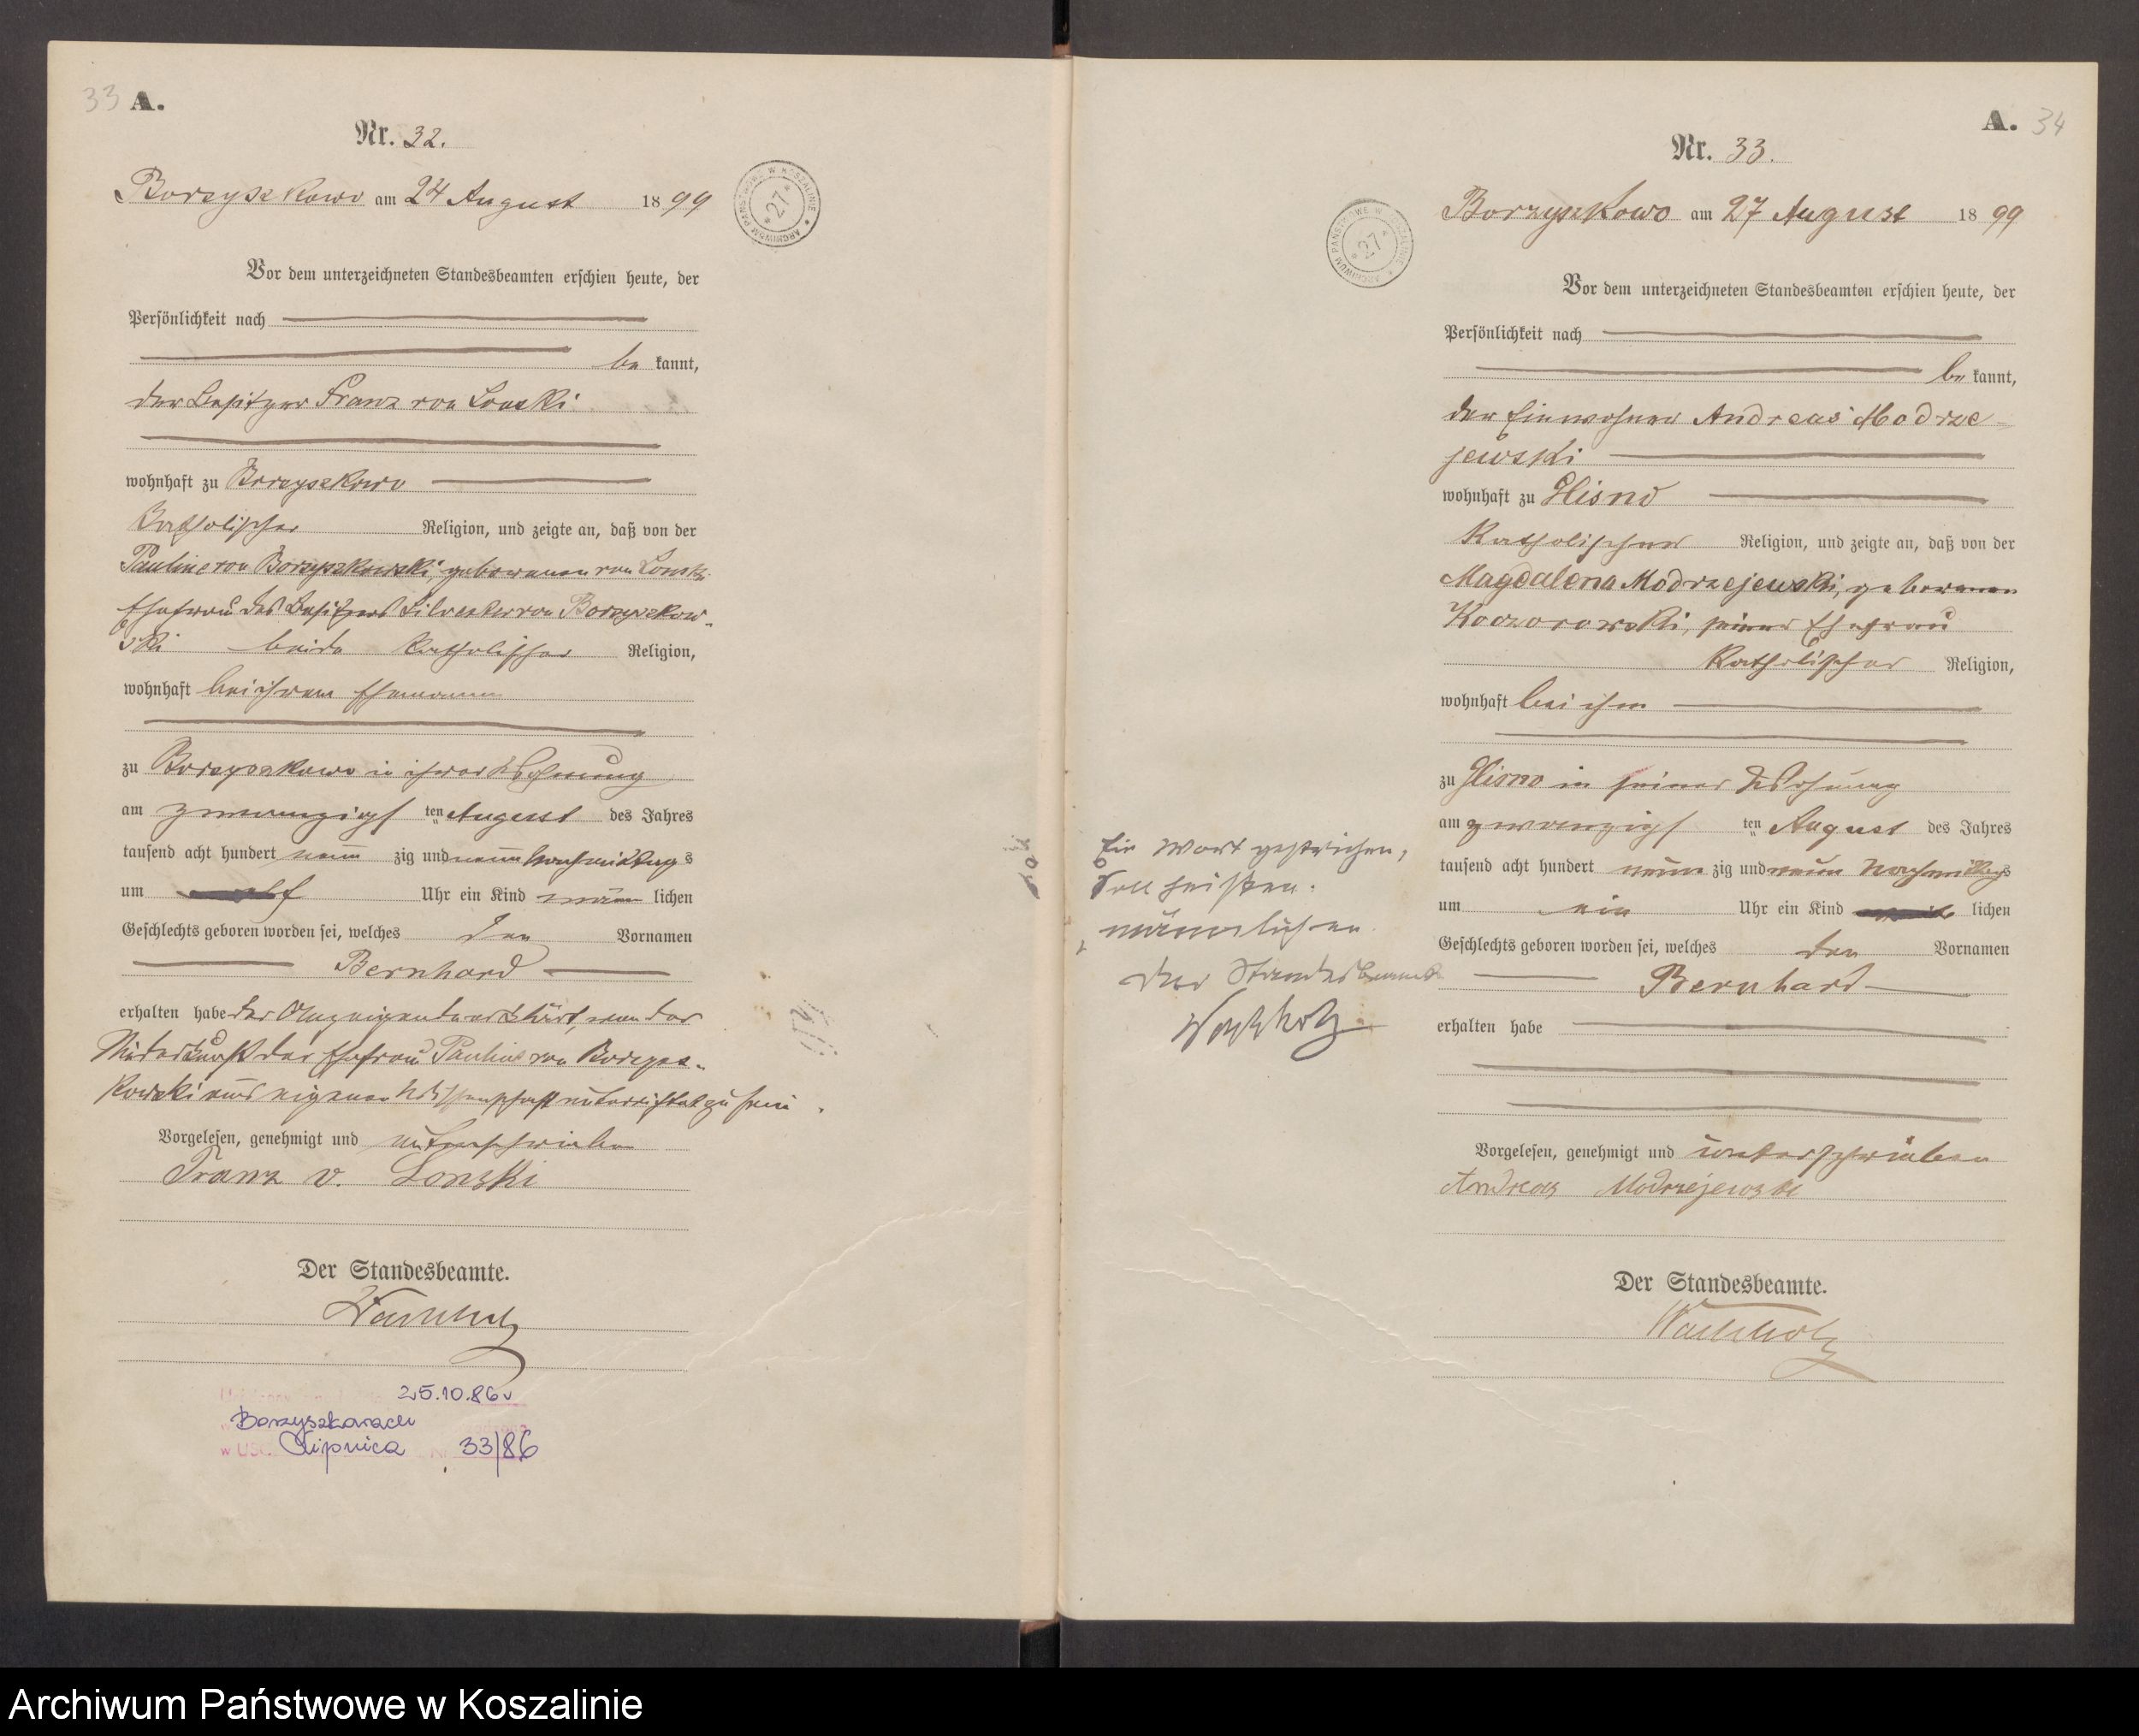 33 A.
Nr. 32.
Borzyszkowo am 24 August 1899
ARCHIWUM PAŃSTWOWE W KOSZALINIE * 27 *
Vor dem unterzeichneten Standesbeamten erschien heute, der
Persönlichkeit nach
be kannt,
der Besitzer Franz von Lonski
wohnhaft zu Borzyszkowo
katholischer Religion, und zeigte an, daß von der
Pauline von Borzyszkowski, geborenen von Lonski
Ehefrau des Besitzers Silvester von Borzyszkow-
ski beide katholischer Religion,
wohnhaft bei ihrem Ehemann
zu Borzyszkowo in ihrer Wohnung
am zwanzigs ten August des Jahres
tausend acht hundert neun zig und neun Nachmittags
um Uhr ein Kind männ lichen
Geschlechts geboren worden sei, welches den Vornamen
Bernhard
erhalten habe der Anzeigende erklärt, von der
Niederkunft der Ehefrau Pauline von Borzysz-
kowski aus eigener Wissenschaft unterrichtet zu sein.
Vorgelesen, genehmigt und unterschrieben
Franz v. Lonski
Der Standesbeamte.
Wachholz
25.10.86
Borzyszkowach
w USC Lipnica Nr 33/86
A. 34
Nr. 33.
Borzyszkowo am 27 August 1899
ARCHIWUM PAŃSTWOWE W KOSZALINIE * 27 *
Vor dem unterzeichneten Standesbeamten erschien heute, der
Persönlichkeit nach
be kannt,
der Einwohner Andreas Modrze-
jewski
wohnhaft zu Glisno
katholischer Religion, und zeigte an, daß von der
Magdalena Modrzejewski, geborenen
Kaczorowski, seiner Ehefrau
katholischer Religion,
wohnhaft bei ihm
zu Glisno in seiner Wohnung
am zwanzigs ten August des Jahres
tausend acht hundert neun zig und neun Nachmittags
um ein Uhr ein Kind lichen
Geschlechts geboren worden sei, welches den Vornamen
Bernhard
erhalten habe
Vorgelesen, genehmigt und unterschrieben
Andreas Modrzejewski
Der Standesbeamte.
Wachholz
Ein Wort gestrichen,
soll heißen:
männlichen
Der Standesbeamte
Wachholz
Archiwum Państwowe w Koszalinie